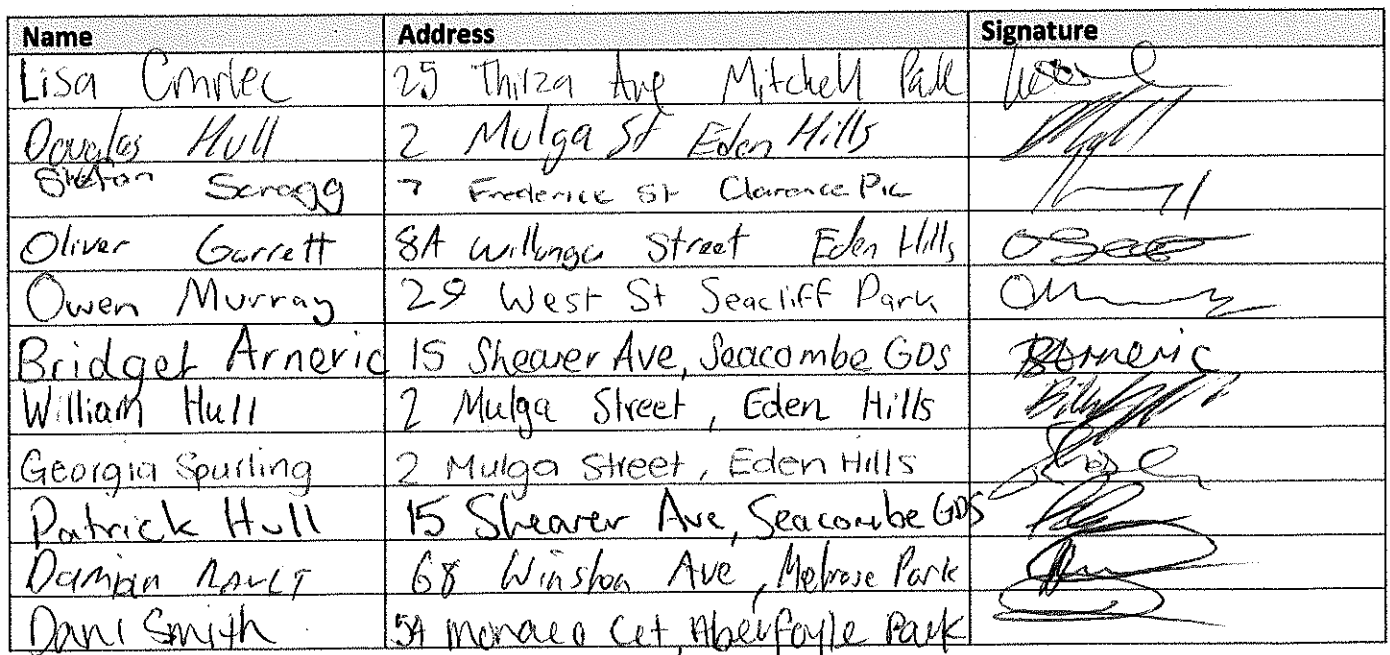 Name Address Signature
Lisa 25 Thirza Ave Mitchell Park
Douglas Hull 2 Mulga St Eden Hills
Stefan Scragg 7 Frederick St Clarence Pk
Oliver Garrett 8A Willunga Street Eden Hills
Owen Murray 29 West St Seacliff Park
Bridget Arneric 15 Shearer Ave, Seacombe GDS BArneric
William Hull 2 Mulga Street, Eden Hills
Georgia Spurling 2 Mulga Street, Eden Hills
Patrick Hull 15 Shearer Ave, Seacombe GDS
Damian 68 Winston Ave, Melrose Park
Dani Smith Monaco Cct, Aberfoyle Park